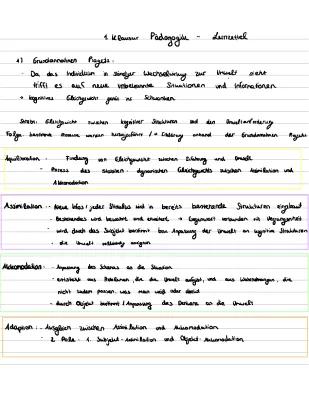 1 Klausur Pädagogik - Lernzettel
1) Grundannahmen Piagets:
- Da das Individuum in ständiger Wechselwirkung zur Umwelt steht
trifft es auf neue unbekannte Situationen und Informationen
→ kognitives Gleichgewicht gerät ins Schwanken
Streben: Gleichgewicht zwischen kognitiver Strukturen und den Umweltanforderung
Folge: bestimmte Prozesse werden / → anhand der Grundannahmen Piagets
Äquilibration: Findung von Gleichgewicht zwischen Erfahrung und Umwelt
- Prozess des dynamischen Gleichgewichts zwischen Assimilation und
Akkomodation
Assimilation: - Neue Was jeder in bereits Strukturen eingebaut
- Bestehendes wird bewahrt und erweitert → Gegenwart verbunden mit Vergangenheit
- wird durch das Subjekt bestimmt Anpassung der Umwelt an kognitive Strukturen
- die Umwelt
Akkomodation: - Anpassung des Schemas an die Situation
- entsteht aus Problemen, die die Umwelt aufgibt, und aus Wahrnehmungen, die
nicht passen, was man weiß oder
- durch Objekt bestimmt / Anpassung des Denkens an die Umwelt
Adaption: - Ausgleich zwischen Assimilation und Akkomodation
- 2 Pole: 1. Subjekt-Assimilation und Objekt-Akkomodation